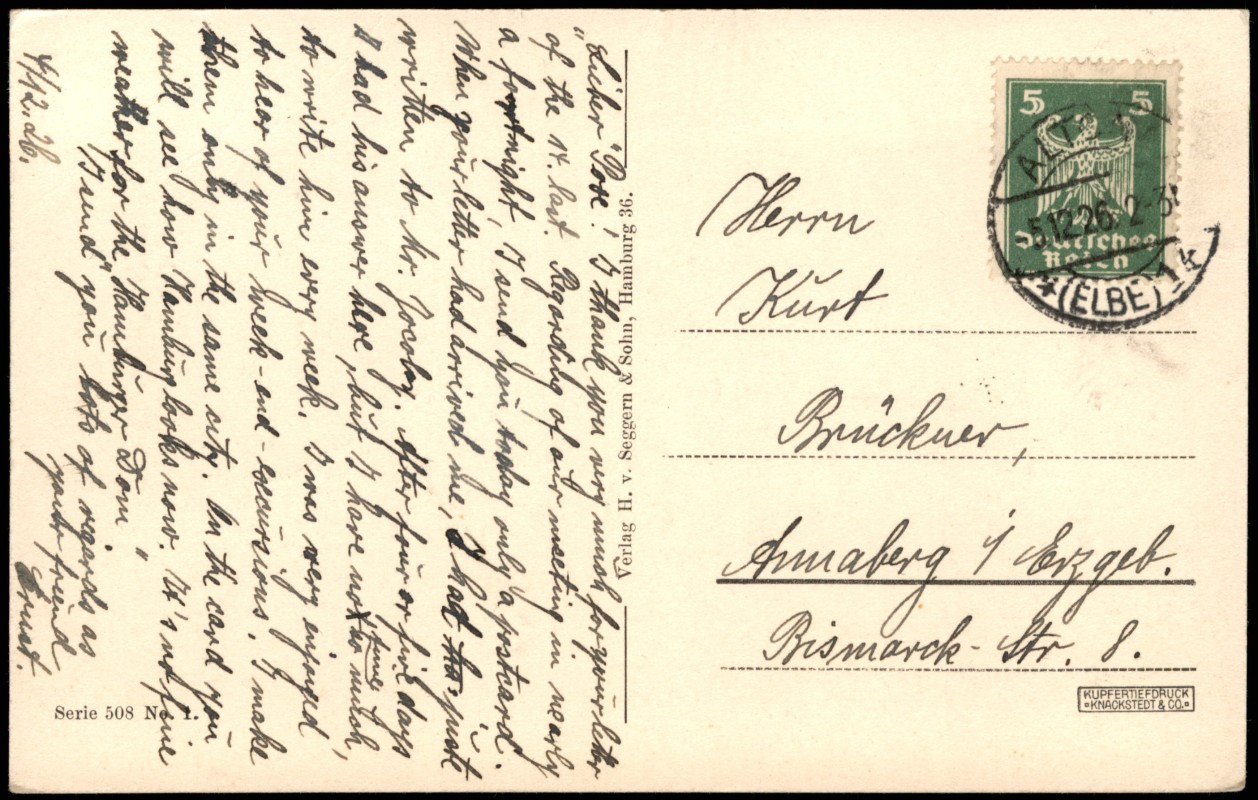 "Lieber Posse! I thank you very much for your letter
of the 14. last. Regarding of our meeting in nearly
a fortnight, I send you today only a postcard.
When your letter had arrived me, I had just
written to Mr. Jacoby. After four or five days
I had his answer here, but I have not time much,
to write him every week. I was very enjoyed
to hear of your week-end-excursions. I make
them only in the same city. On the card you
will see how Hamburg looks now. It's not fine
weather for the "Hamburger Dom".
I send you lots of regards as
your friend
Ernst.
4/12.26.
Serie 508 No. 1.
Verlag H. v. Seggern & Sohn, Hamburg 36.
5 5
Deutsches
Reich
ALTONA
5.12.26. 2-3
* (ELBE) 1 k
Herrn
Kurt
Brückner,
Annaberg i/Erzgeb.
Bismarck-Str. 8.
KUPFERTIEFDRUCK
KNACKSTEDT & CO.